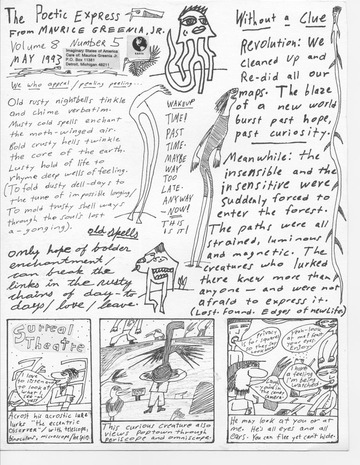 The Poetic Express
FROM MAURICE GREENIA, JR.
Volume 8 Number 5
MAY 1993
Imaginary States of America
P.O. Box 11881
Detroit, Michigan 48211
We who appeal / pealing peeling...
Old rusty nightbells tinkle
and chime verbatim.
Musty cold spells enchant
the moth-winged air.
Bold crusty hells twinkle
the core of the earth.
Lusty hold of life to
rhyme deep wells of feeling.
(To fold dusty dell-days to
the tune of impossible longing/
To mold trusty shell ways
through the soul's lost
a-gonging).
old spells
only hope of bolder
enchantment/
can break the
links in the rusty
chains of day-to
days/love/leave.
WAKEUP
TIME!
PAST
TIME.
MAYBE
WAY
TOO
LATE.
ANYWAY
-NOW!
THIS
IS IT!
Without a Clue
Revolution: We
cleaned up and
Re-did all our
maps. The blaze
of a new world
burst past hope,
past curiosity.
Meanwhile: the
insensible and the
insensitive were
suddenly forced to
enter the forest.
The paths were all
strained, luminous
and magnetic. The
creatures who lurked
there knew more than
anyone and were not
afraid to express it.
(Lost. Found. Edges of new life)
Surreal
Theatre
I love
to listen
to look at
what I
see
Across his acrostic lake
lurks "the eccentric
observer"/with telescope,
binoculars, microscope/he spies.
This curious creature also
views Poptown through
periscope and omniscope!
Privacy
is for squares
I have
a feeling
I'm being
watched
He may look at you or at
me. He's all eyes and all
ears. You can flee yet can't hide.